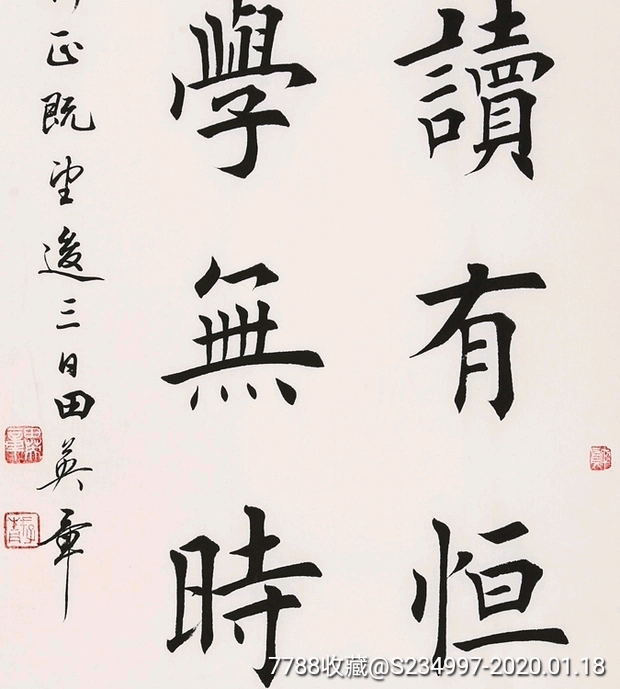 讀有恒
學無時
正既望後三日田英章
7788收藏@S234997-2020.01.18